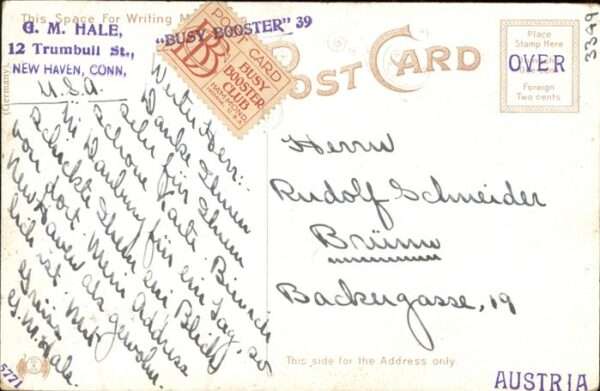 This Space For Writing M
G. M. HALE,
12 Trumbull St.,
NEW HAVEN, CONN.
U.S.A.
"BUSY BOOSTER" 39
POST CARD
BBC
BUSY
BOOSTER
CLUB
POST CARD
Place
Stamp Here
OVER
Foreign
Two cents
3399
(Germany).
Werter Herr:-
Danke Ihnen
sehr für Ihren
schöne Karte. Bin ich
in
für ein Tag, so
schickte Ihnen ein
von dort. Mein Address
New Haven als
lich ist. Mit
Gruss
G. M. Hale.
Herrn
Rudolf Schneider
Brünn
Backergasse, 19
This side for the Address only
5771
AUSTRIA